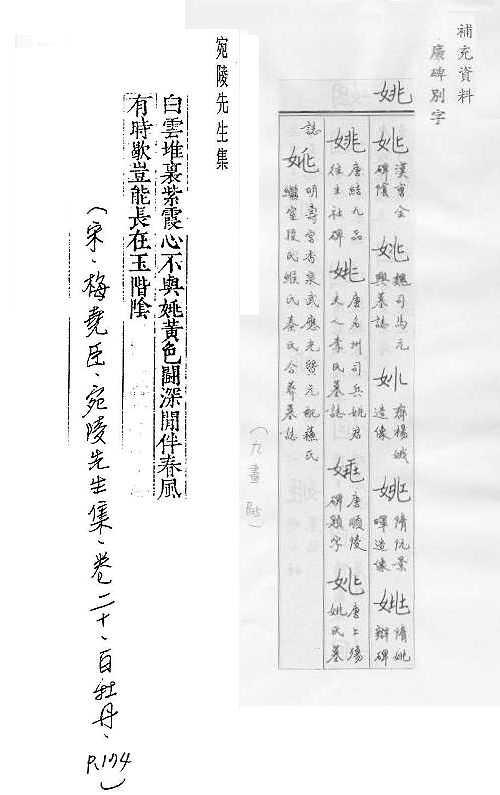 補充資料
廣碑別字
姚
姚 漢曹全碑陰
姚 魏司馬元興墓誌
姚 齊楊
造像
姚 隋阮景暉造像
姚 隋姚辯碑
姚 唐結九品往生社碑
姚 唐洺州司兵姚君夫人李氏墓誌
姚 唐順陵碑額字
姚 唐上殤姚氏墓
誌
姚 明壽官秦泉武應光暨元配蘇氏
繼室段氏緱氏秦氏合葬墓誌
(九畫
宛陵先生集
白雲堆裏紫霞心不與姚黃色鬪深閒伴春風
有時歇豈能長在玉階陰
(宋、梅堯臣、宛陵先生集、卷二十、白牡丹、P.174)